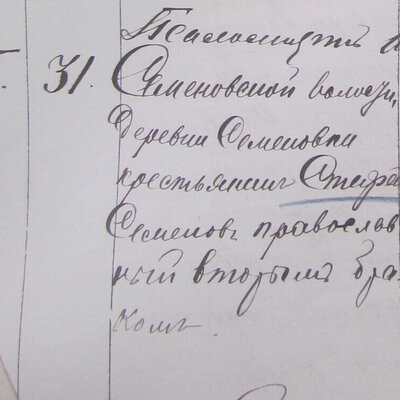 31. Семеновской волости,
деревни Семеновки
крестьянинъ Стефа
Семеновъ православ
ный вторымъ бра-
комъ.